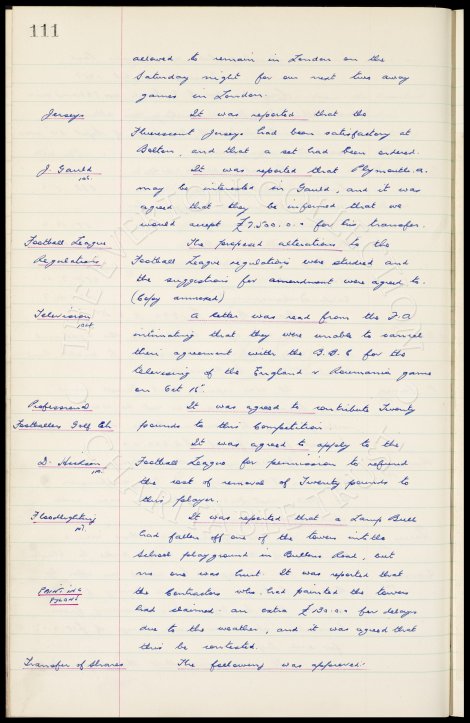 111
allowed to remain in London on the
Saturday night for our next two away
games in London.
Jerseys It was reported that the
Fluorescent Jerseys had been satisfactory at
Bolton, and that a set had been ordered.
J. Gauld It was reported that Plymouth A.
may be interested in Gauld, and it was
agreed that they be informed that we
would accept £7,500.0.0 for his transfer.
Football League The proposed alterations to the
Regulations Football League regulations were studied and
the suggestions for amendment were agreed to.
(Copy annexed)
Television A letter was read from the F.A
intimating that they were unable to cancel
their agreement with the B.B.C for the
televising of the England v Roumania game
on Oct 15
Professional It was agreed to contribute Twenty
Footballers Golf Ch. pounds to this Competition.
It was agreed to apply to the
D. Hickson Football League for permission to refund
the cost of removal of Twenty pounds to
this player.
Floodlighting It was reported that a Lamp Bulb
had fallen off one of the towers into the
School playground in Bullens Road, but
no one was hurt. It was reported that
PAINTING the Contractors who had painted the towers
PYLONS had claimed an extra for delays
due to the weather, and it was agreed that
this be contested.
Transfer of Shares The following was approved: